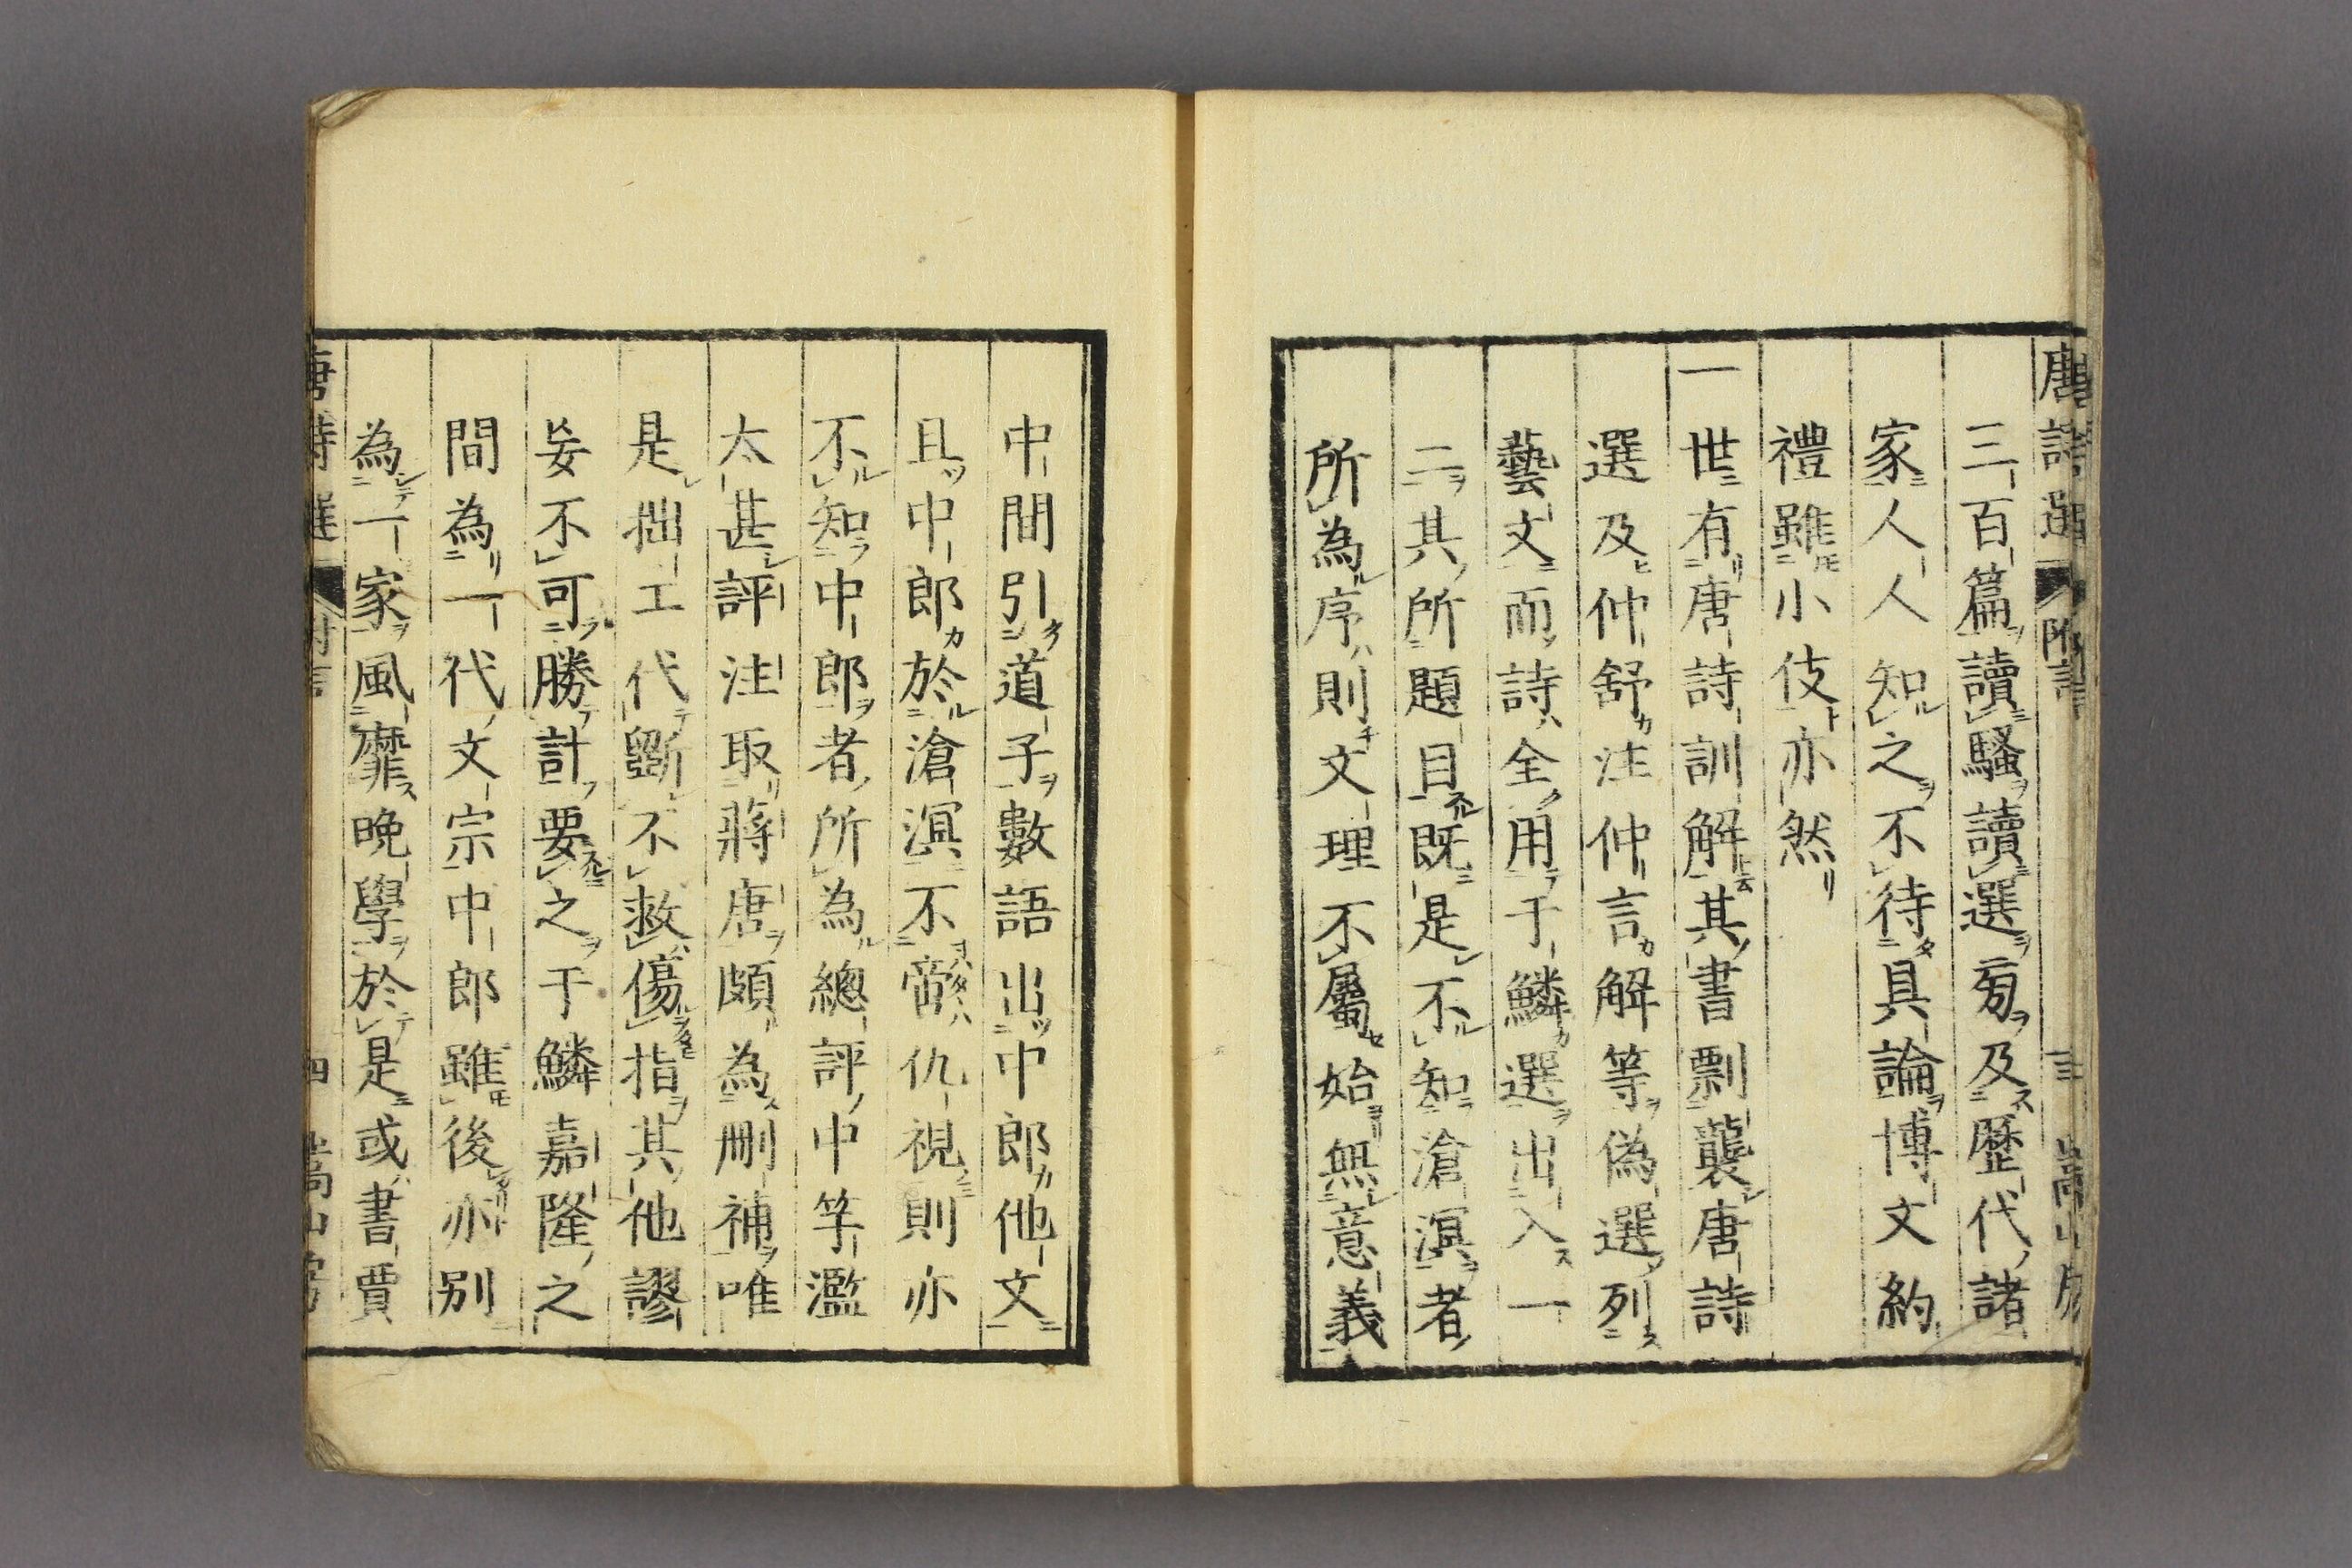 唐詩選 附言 三 嵩山房
三百篇讀騷讀選旁及歷代諸
家人人知之不待具論博文約
禮雖小伎亦然
一世有唐詩訓解其書剽襲唐詩
選及仲舒注仲言解等偽選列
藝文而詩全用于鱗選出入一
二其所題目既是不知滄溟者
所為序則文理不屬始無意義
中間引道子數語出中郎他文
且中郎於滄溟不啻仇視則亦
不知中郎者所為總評中竽濫
太甚評注取蔣唐頗為刪補唯
是拙工代斵不救傷指其他謬
妄不可勝計要之于鱗嘉隆之
間為一代文宗中郎雖後亦別
為一家風靡晚學於是或書賈
唐詩選 附言 四 嵩山房